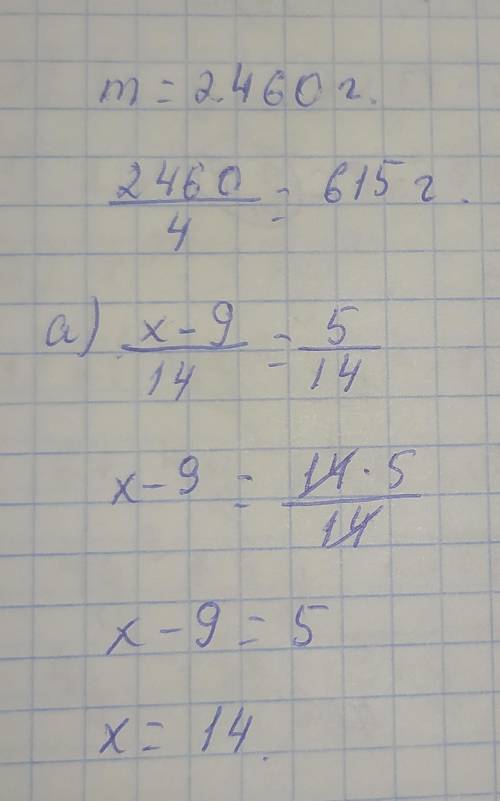 m = 2460 г.
2460/4 = 615 г.
а) (x - 9)/14 = 5/14
x - 9 = (14 · 5)/14
x - 9 = 5
x = 14.